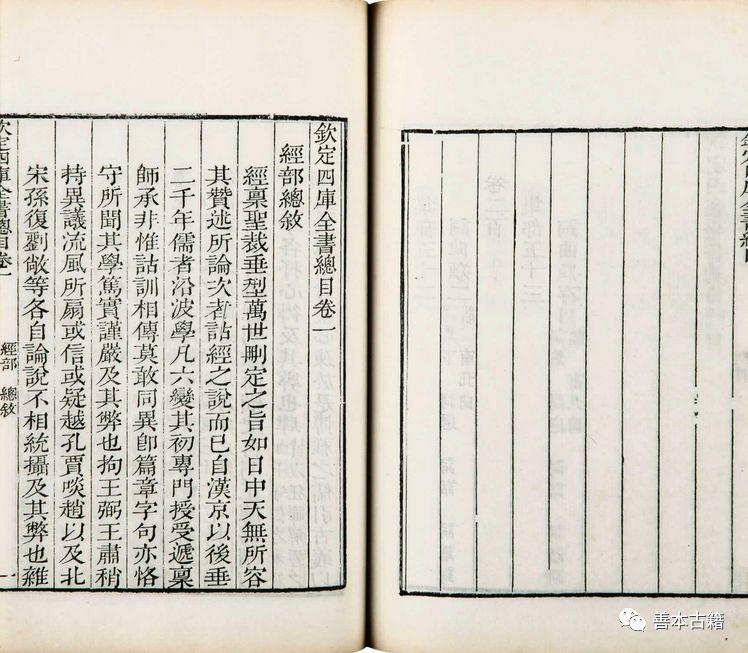 欽定四庫全書總目
欽定四庫全書總目卷一
經部總敘
經稟聖裁垂型萬世刪定之旨如日中天無所容
其贊述所論次者詁經之說而已自漢京以後垂
二千年儒者沿波學凡六變其初專門授受遞稟
師承非惟詁訓相傳莫敢同異卽篇章字句亦恪
守所聞其學篤實謹嚴及其弊也拘王弼王肅稍
持異議流風所扇或信或疑越孔賈啖趙以及北
宋孫復劉敞等各自論說不相統攝及其弊也雜
欽定四庫全書總目卷一 經部 總敘 一
善本古籍